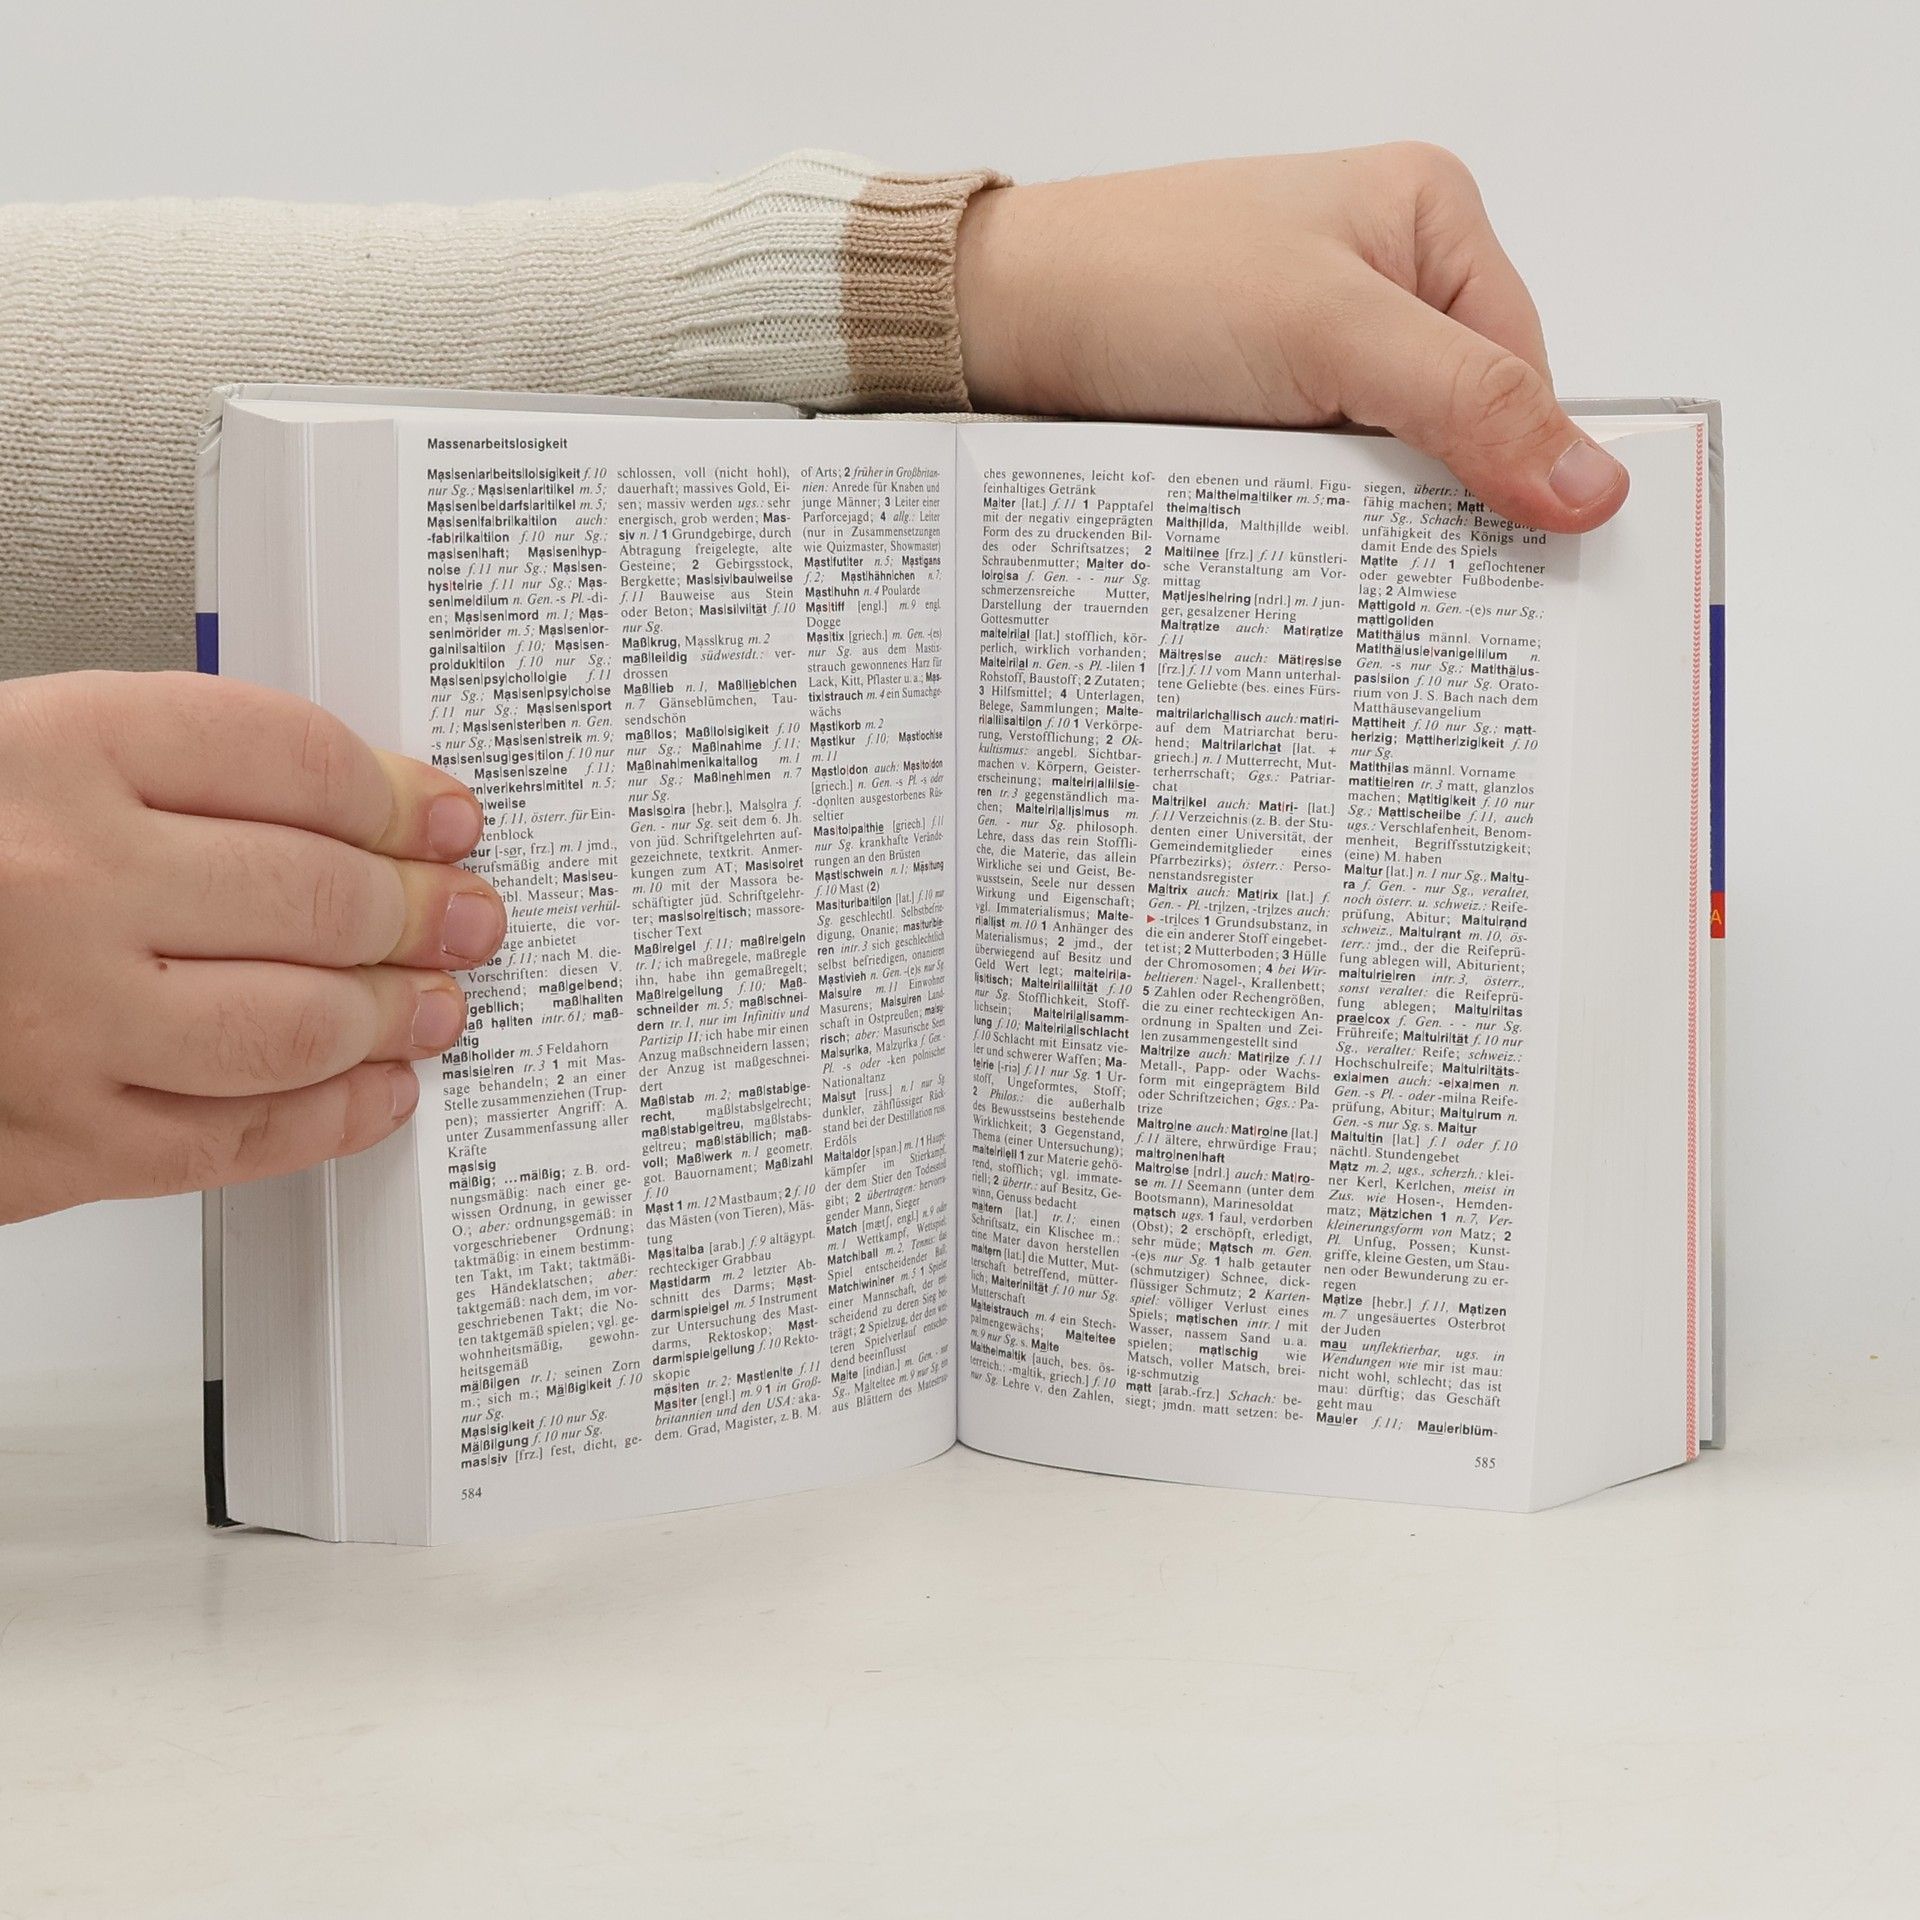 Massenarbeitslosigkeit
Mas|sen|ar|beits|lo|sig|keit f. 10
nur Sg.; Mas|sen|ar|ti|kel m. 5;
Mas|sen|be|darfs|ar|ti|kel m. 5;
Mas|sen|fa|bri|ka|ti|on auch:
-fab|ri|ka|ti|on f. 10 nur Sg.;
mas|sen|haft; Mas|sen|hyp-
no|se f. 11 nur Sg.; Mas|sen-
hys|te|rie f. 11 nur Sg.; Mas-
sen|me|di|um n. Gen. -s Pl. -di-
en; Mas|sen|mord m. 1; Mas-
sen|mör|der m. 5; Mas|sen|or-
ga|ni|sa|ti|on f. 10; Mas|sen-
pro|duk|ti|on f. 10 nur Sg.;
Mas|sen|psy|cho|lo|gie f. 11
nur Sg.; Mas|sen|psy|cho|se
f. 11 nur Sg.; Mas|sen|sport
m. 1; Mas|sen|ster|ben n. Gen.
-s nur Sg.; Mas|sen|streik m. 9;
Mas|sen|sug|ges|ti|on f. 10 nur
Mas|sen|sze|ne f. 11;
en|ver|kehrs|mit|tel n. 5;
|wei|se
te f. 11, österr. für Ein-
tenblock
eur [-sør, frz.] m. 1 jmd.,
berufsmäßig andere mit
behandelt; Mas|seu-
ibl. Masseur; Mas-
heute meist verhül-
tituierte, die vor-
age anbietet
be f. 11; nach M. die-
Vorschriften: diesen V.
prechend; maß|ge|bend;
|geb|lich; maß|hal|ten
aß hal|ten intr. 61; maß-
äl|tig
Maß|hol|der m. 5 Feldahorn
mas|sie|ren tr. 3 1 mit Mas-
sage behandeln; 2 an einer
Stelle zusammenziehen (Trup-
pen); massierter Angriff: A.
unter Zusammenfassung aller
Kräfte
mas|sig
mä|ßig; ...mä|ßig; z. B. ord-
nungsmäßig: nach einer ge-
wissen Ordnung, in gewisser
O.; aber: ordnungsgemäß: in
vorgeschriebener Ordnung;
taktmäßig: in einem bestimm-
ten Takt, im Takt; taktmäßi-
ges Händeklatschen; aber:
taktgemäß: nach dem, im vor-
geschriebenen Takt; die No-
ten taktgemäß spielen; vgl. ge-
wohnheitsmäßig, gewohn-
heitsgemäß
mä|ßi|gen tr. 1; seinen Zorn
m.; sich m.; Mä|ßig|keit f. 10
nur Sg.
Mas|sig|keit f. 10 nur Sg.
Mä|ßi|gung f. 10 nur Sg.
mas|siv [frz.] fest, dicht, ge-
584
schlossen, voll (nicht hohl),
dauerhaft; massives Gold, Ei-
sen; massiv werden ugs.: sehr
energisch, grob werden; Mas-
siv n. 1 1 Grundgebirge, durch
Abtragung freigelegte, alte
Gesteine; 2 Gebirgsstock,
Bergkette; Mas|siv|bau|wei|se
f. 11 Bauweise aus Stein
oder Beton; Mas|si|vi|tät f. 10
nur Sg.
Maß|krug, Mass|krug m. 2
maß|lei|dig südwestdt.: ver-
drossen
Maß|lieb n. 1, Maß|lieb|chen
n. 7 Gänseblümchen, Tau-
sendschön
maß|los; Maß|lo|sig|keit f. 10
nur Sg.; Maß|nah|me f. 11;
Maß|nah|men|ka|ta|log m. 1
nur Sg.; Maß|neh|men n. 7
nur Sg.
Mas|so|ra [hebr.], Ma|so|ra f.
Gen. - nur Sg. seit dem 6. Jh.
von jüd. Schriftgelehrten auf-
gezeichnete, textkrit. Anmer-
kungen zum AT; Mas|so|ret
m. 10 mit der Massora be-
schäftigter jüd. Schriftgelehr-
ter; mas|so|re|tisch; massore-
tischer Text
Maß|re|gel f. 11; maß|re|geln
tr. 1; ich maßregele, maßregle
ihn, habe ihn gemaßregelt;
Maß|re|ge|lung f. 10; Maß-
schnei|der m. 5; maß|schnei-
dern tr. 1, nur im Infinitiv und
Partizip II; ich habe mir einen
Anzug maßschneidern lassen;
der Anzug ist maßgeschnei-
dert
Maß|stab m. 2; maß|stab|ge-
recht, maßstabs|gerecht;
maß|stab|ge|treu, maßstabs-
getreu; maß|stäb|lich; maß-
voll; Maß|werk n. 1 geometr.
got. Bauornament; Maß|zahl
f. 10
Mast 1 m. 12 Mastbaum; 2 f. 10
das Mästen (von Tieren), Mäs-
tung
Mas|ta|ba [arab.] f. 9 altägypt.
rechteckiger Grabbau
Mast|darm m. 2 letzter Ab-
schnitt des Darms; Mast-
darm|spie|gel m. 5 Instrument
zur Untersuchung des Mast-
darms, Rektoskop; Mast-
darm|spie|ge|lung f. 10 Rekto-
skopie
mäs|ten tr. 2; Mast|en|te f. 11
Mas|ter [engl.] m. 9 1 in Groß-
britannien und den USA: aka-
dem. Grad, Magister, z. B. M.
of Arts; 2 früher in Großbritan-
nien: Anrede für Knaben und
junge Männer; 3 Leiter einer
Parforcejagd; 4 allg.: Leiter
(nur in Zusammensetzungen
wie Quizmaster, Showmaster)
Mast|fut|ter n. 5; Mast|gans
f. 2; Mast|hähn|chen n. 7;
Mast|huhn n. 4 Poularde
Mas|tiff [engl.] m. 9 engl.
Dogge
Mas|tix [griech.] m. Gen. -(es)
nur Sg. aus dem Mastix-
strauch gewonnenes Harz für
Lack, Kitt, Pflaster u. a.; Mas-
tix|strauch m. 4 ein Sumachge-
wächs
Mast|korb m. 2
Mast|kur f. 10; Mast|och|se
m. 11
Mast|o|don auch: Mas|to|don
[griech.] n. Gen. -s Pl. -s oder
-donten ausgestorbenes Rüs-
seltier
Mas|to|pa|thie [griech.] f. 11
nur Sg. krankhafte Verände-
rungen an den Brüsten
Mast|schwein n. 1; Mäs|tung
f. 10 Mast (2)
Mas|tur|ba|ti|on [lat.] f. 10 nur
Sg. geschlechtl. Selbstbefrie-
digung, Onanie; mas|tur|bie-
ren intr. 3 sich geschlechtlich
selbst befriedigen, onanieren
Mast|vieh n. Gen. -(e)s nur Sg.
Ma|su|re m. 11 Einwohner
Masurens; Ma|su|ren Land-
schaft in Ostpreußen; ma|su-
risch; aber: Masurische Seen
Ma|sur|ka, Ma|zur|ka f. Gen. -
Pl. -s oder -ken polnischer
Nationaltanz
Ma|sut [russ.] n. 1 nur Sg.
dunkler, zähflüssiger Rück-
stand bei der Destillation russ.
Erdöls
Ma|ta|dor [span.] m. 1 1 Haupt-
kämpfer im Stierkampf,
der dem Stier den Todesstoß
gibt; 2 übertragen: hervorra-
gender Mann, Sieger
Match [mætʃ, engl.] n. 9 oder
m. 1 Wettkampf, Wettspiel;
Match|ball m. 2, Tennis: das
Spiel entscheidender Ball;
Match|win|ner m. 5 1 Spieler
einer Mannschaft, der ent-
scheidend zu deren Sieg bei-
trägt; 2 Spielzug, der den wei-
teren Spielverlauf entschei-
dend beeinflusst
Ma|te [indian.] m. Gen. - nur
Sg., Ma|te|tee m. 9 nur Sg. ein
aus Blättern des Matestrau-
ches gewonnenes, leicht kof-
feinhaltiges Getränk
Ma|ter [lat.] f. 11 1 Papptafel
mit der negativ eingeprägten
Form des zu druckenden Bil-
des oder Schriftsatzes; 2
Schraubenmutter; Ma|ter do-
lo|ro|sa f. Gen. - - nur Sg.
schmerzensreiche Mutter,
Darstellung der trauernden
Gottesmutter
ma|te|ri|al [lat.] stofflich, kör-
perlich, wirklich vorhanden;
Ma|te|ri|al n. Gen. -s Pl. -li|en 1
Rohstoff, Baustoff; 2 Zutaten;
3 Hilfsmittel; 4 Unterlagen,
Belege, Sammlungen; Ma|te-
ri|a|li|sa|ti|on f. 10 1 Verkörpe-
rung, Verstofflichung; 2 Ok-
kultismus: angebl. Sichtbar-
machen v. Körpern, Geister-
erscheinung; ma|te|ri|a|li|sie-
ren tr. 3 gegenständlich ma-
chen; Ma|te|ri|a|lis|mus m.
Gen. - nur Sg. philosoph.
Lehre, dass das rein Stoffli-
che, die Materie, das allein
Wirkliche sei und Geist, Be-
wusstsein, Seele nur dessen
Wirkung und Eigenschaft;
vgl. Immaterialismus; Ma|te-
ri|a|list m. 10 1 Anhänger des
Materialismus; 2 jmd., der
überwiegend auf Besitz und
Geld Wert legt; ma|te|ri|a-
lis|tisch; Ma|te|ri|a|li|tät f. 10
nur Sg. Stofflichkeit, Stoff-
lichsein; Ma|te|ri|al|samm-
lung f. 10; Ma|te|ri|al|schlacht
f. 10 Schlacht mit Einsatz vie-
ler und schwerer Waffen; Ma-
te|rie [-riə] f. 11 nur Sg. 1 Ur-
stoff, Ungeformtes, Stoff;
2 Philos.: die außerhalb
des Bewusstseins bestehende
Wirklichkeit; 3 Gegenstand,
Thema (einer Untersuchung);
ma|te|ri|ell 1 zur Materie gehö-
rend, stofflich; vgl. immate-
riell; 2 übertr.: auf Besitz, Ge-
winn, Genuss bedacht
ma|tern [lat.] tr. 1; einen
Schriftsatz, ein Klischee m.:
eine Mater davon herstellen
ma|tern [lat.] die Mutter, Mut-
terschaft betreffend, mütter-
lich; Ma|ter|ni|tät f. 10 nur Sg.
Mutterschaft
Ma|te|strauch m. 4 ein Stech-
palmengewächs; Ma|te|tee
m. 9 nur Sg. s. Mate
Ma|the|ma|tik [auch, bes. ös-
terreich.: -matik, griech.] f. 10
nur Sg. Lehre v. den Zahlen,
den ebenen und räuml. Figu-
ren; Ma|the|ma|ti|ker m. 5; ma-
the|ma|tisch
Mat|hil|da, Mat|hil|de weibl.
Vorname
Ma|ti|nee [frz.] f. 11 künstleri-
sche Veranstaltung am Vor-
mittag
Mat|jes|he|ring [ndrl.] m. 1 jun-
ger, gesalzener Hering
Ma|trat|ze auch: Mat|rat|ze
f. 11
Mä|tres|se auch: Mät|res|se
[frz.] f. 11 vom Mann unterhal-
tene Geliebte (bes. eines Fürs-
ten)
ma|tri|ar|cha|lisch auch: mat|ri-
auf dem Matriarchat beru-
hend; Ma|tri|ar|chat [lat. +
griech.] n. 1 Mutterrecht, Mut-
terherrschaft; Ggs.: Patriar-
chat
Ma|tri|kel auch: Mat|ri- [lat.]
f. 11 Verzeichnis (z. B. der Stu-
denten einer Universität, der
Gemeindemitglieder eines
Pfarrbezirks); österr.: Perso-
nenstandsregister
Ma|trix auch: Mat|rix [lat.] f.
Gen. - Pl. -tri|zen, -tri|zes auch:
▶ -tri|ces 1 Grundsubstanz, in
die ein anderer Stoff eingebet-
tet ist; 2 Mutterboden; 3 Hülle
der Chromosomen; 4 bei Wir-
beltieren: Nagel-, Krallenbett;
5 Zahlen oder Rechengrößen,
die zu einer rechteckigen An-
ordnung in Spalten und Zei-
len zusammengestellt sind
Ma|tri|ze auch: Mat|ri|ze f. 11
Metall-, Papp- oder Wachs-
form mit eingeprägtem Bild
oder Schriftzeichen; Ggs.: Pa-
trize
Ma|tro|ne auch: Mat|ro|ne [lat.]
f. 11 ältere, ehrwürdige Frau;
ma|tro|nen|haft
Ma|tro|se [ndrl.] auch: Mat|ro-
se m. 11 Seemann (unter dem
Bootsmann), Marinesoldat
matsch ugs. 1 faul, verdorben
(Obst); 2 erschöpft, erledigt,
sehr müde; Matsch m. Gen.
-(e)s nur Sg. 1 halb getauter
(schmutziger) Schnee, dick-
flüssiger Schmutz; 2 Karten-
spiel: völliger Verlust eines
Spiels; mat|schen intr. 1 mit
Wasser, nassem Sand u. a.
spielen; mat|schig wie
Matsch, voller Matsch, brei-
ig-schmutzig
matt [arab.-frz.] Schach: be-
siegt; jmdn. matt setzen: be-
siegen, übertr.:
fähig machen; Matt
nur Sg., Schach: Bewegungs-
unfähigkeit des Königs und
damit Ende des Spiels
Mat|te f. 11 1 geflochtener
oder gewebter Fußbodenbe-
lag; 2 Almwiese
Matt|gold n. Gen. -(e)s nur Sg.;
matt|gol|den
Mat|thä|us männl. Vorname;
Mat|thä|us|e|van|ge|li|um n.
Gen. -s nur Sg.; Mat|thä|us-
pas|si|on f. 10 nur Sg. Orato-
rium von J. S. Bach nach dem
Matthäusevangelium
Matt|heit f. 10 nur Sg.; matt-
her|zig; Matt|her|zig|keit f. 10
nur Sg.
Mat|thi|as männl. Vorname
mat|tie|ren tr. 3 matt, glanzlos
machen; Mat|tig|keit f. 10 nur
Sg.; Matt|schei|be f. 11, auch
ugs.: Verschlafenheit, Benom-
menheit, Begriffsstutzigkeit;
(eine) M. haben
Ma|tur [lat.] n. 1 nur Sg., Ma|tu-
ra f. Gen. - nur Sg., veraltet,
noch österr. u. schweiz.: Reife-
prüfung, Abitur; Ma|tu|rand
schweiz., Ma|tu|rant m. 10, ös-
terr.: jmd., der die Reifeprü-
fung ablegen will, Abiturient;
ma|tu|rie|ren intr. 3, österr.,
sonst veraltet: die Reifeprü-
fung ablegen; Ma|tu|ri|tas
prae|cox f. Gen. - - nur Sg.
Frühreife; Ma|tu|ri|tät f. 10 nur
Sg., veraltet: Reife; schweiz.:
Hochschulreife; Ma|tu|ri|täts-
ex|a|men auch: -e|xa|men n.
Gen. -s Pl. - oder -mina Reife-
prüfung, Abitur; Ma|tu|rum n.
Gen. -s nur Sg. s. Matur
Ma|tu|tin [lat.] f. 1 oder f. 10
nächtl. Stundengebet
Matz m. 2, ugs., scherzh.: klei-
ner Kerl, Kerlchen, meist in
Zus. wie Hosen-, Hemden-
matz; Mätz|chen 1 n. 7, Ver-
kleinerungsform von Matz; 2
Pl. Unfug, Possen; Kunst-
griffe, kleine Gesten, um Stau-
nen oder Bewunderung zu er-
regen
Mat|ze [hebr.] f. 11, Mat|zen
m. 7 ungesäuertes Osterbrot
der Juden
mau unflektierbar, ugs. in
Wendungen wie mir ist mau:
nicht wohl, schlecht; das ist
mau: dürftig; das Geschäft
geht mau
Mau|er f. 11; Mau|er|blüm-
585
A